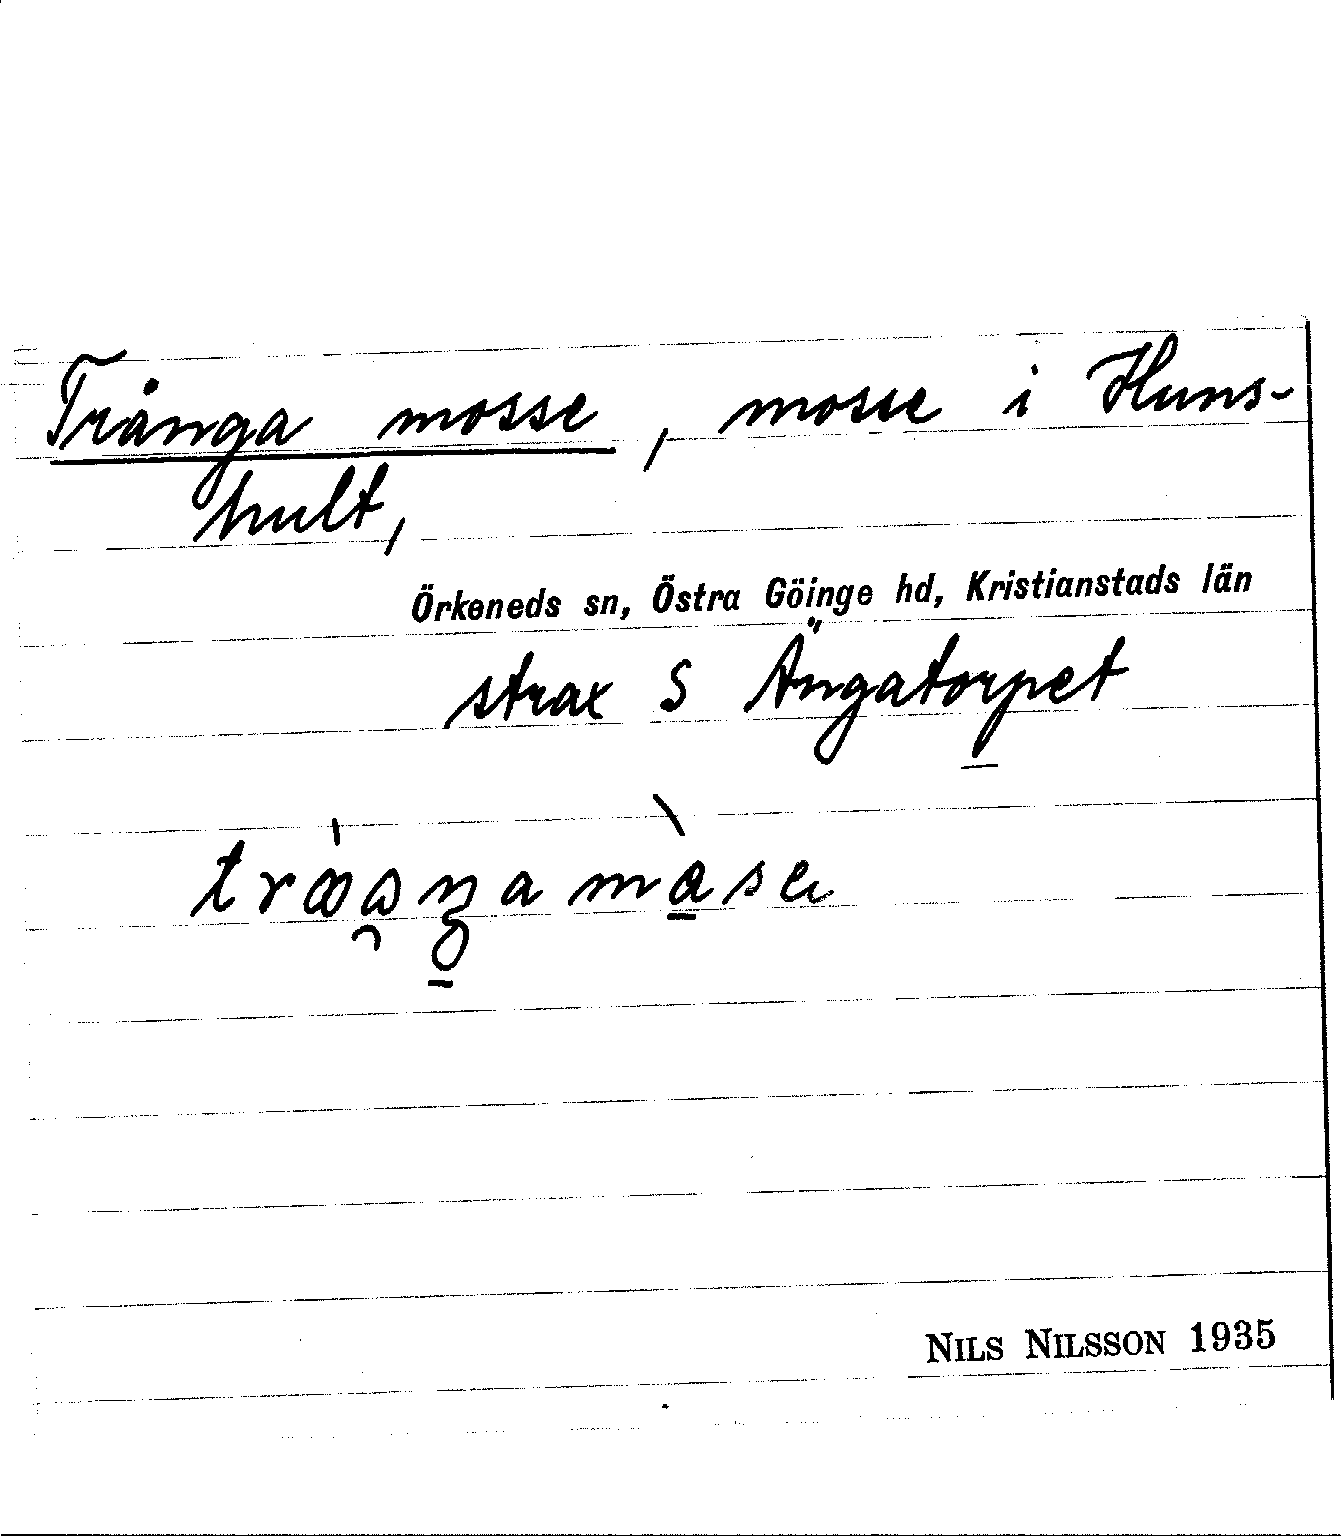 Trånga mosse, mosse i Huns-
hult,
Örkeneds sn, Östra Göinge hd, Kristianstads län
strax S Ängatorpet
NILS NILSSON 1935